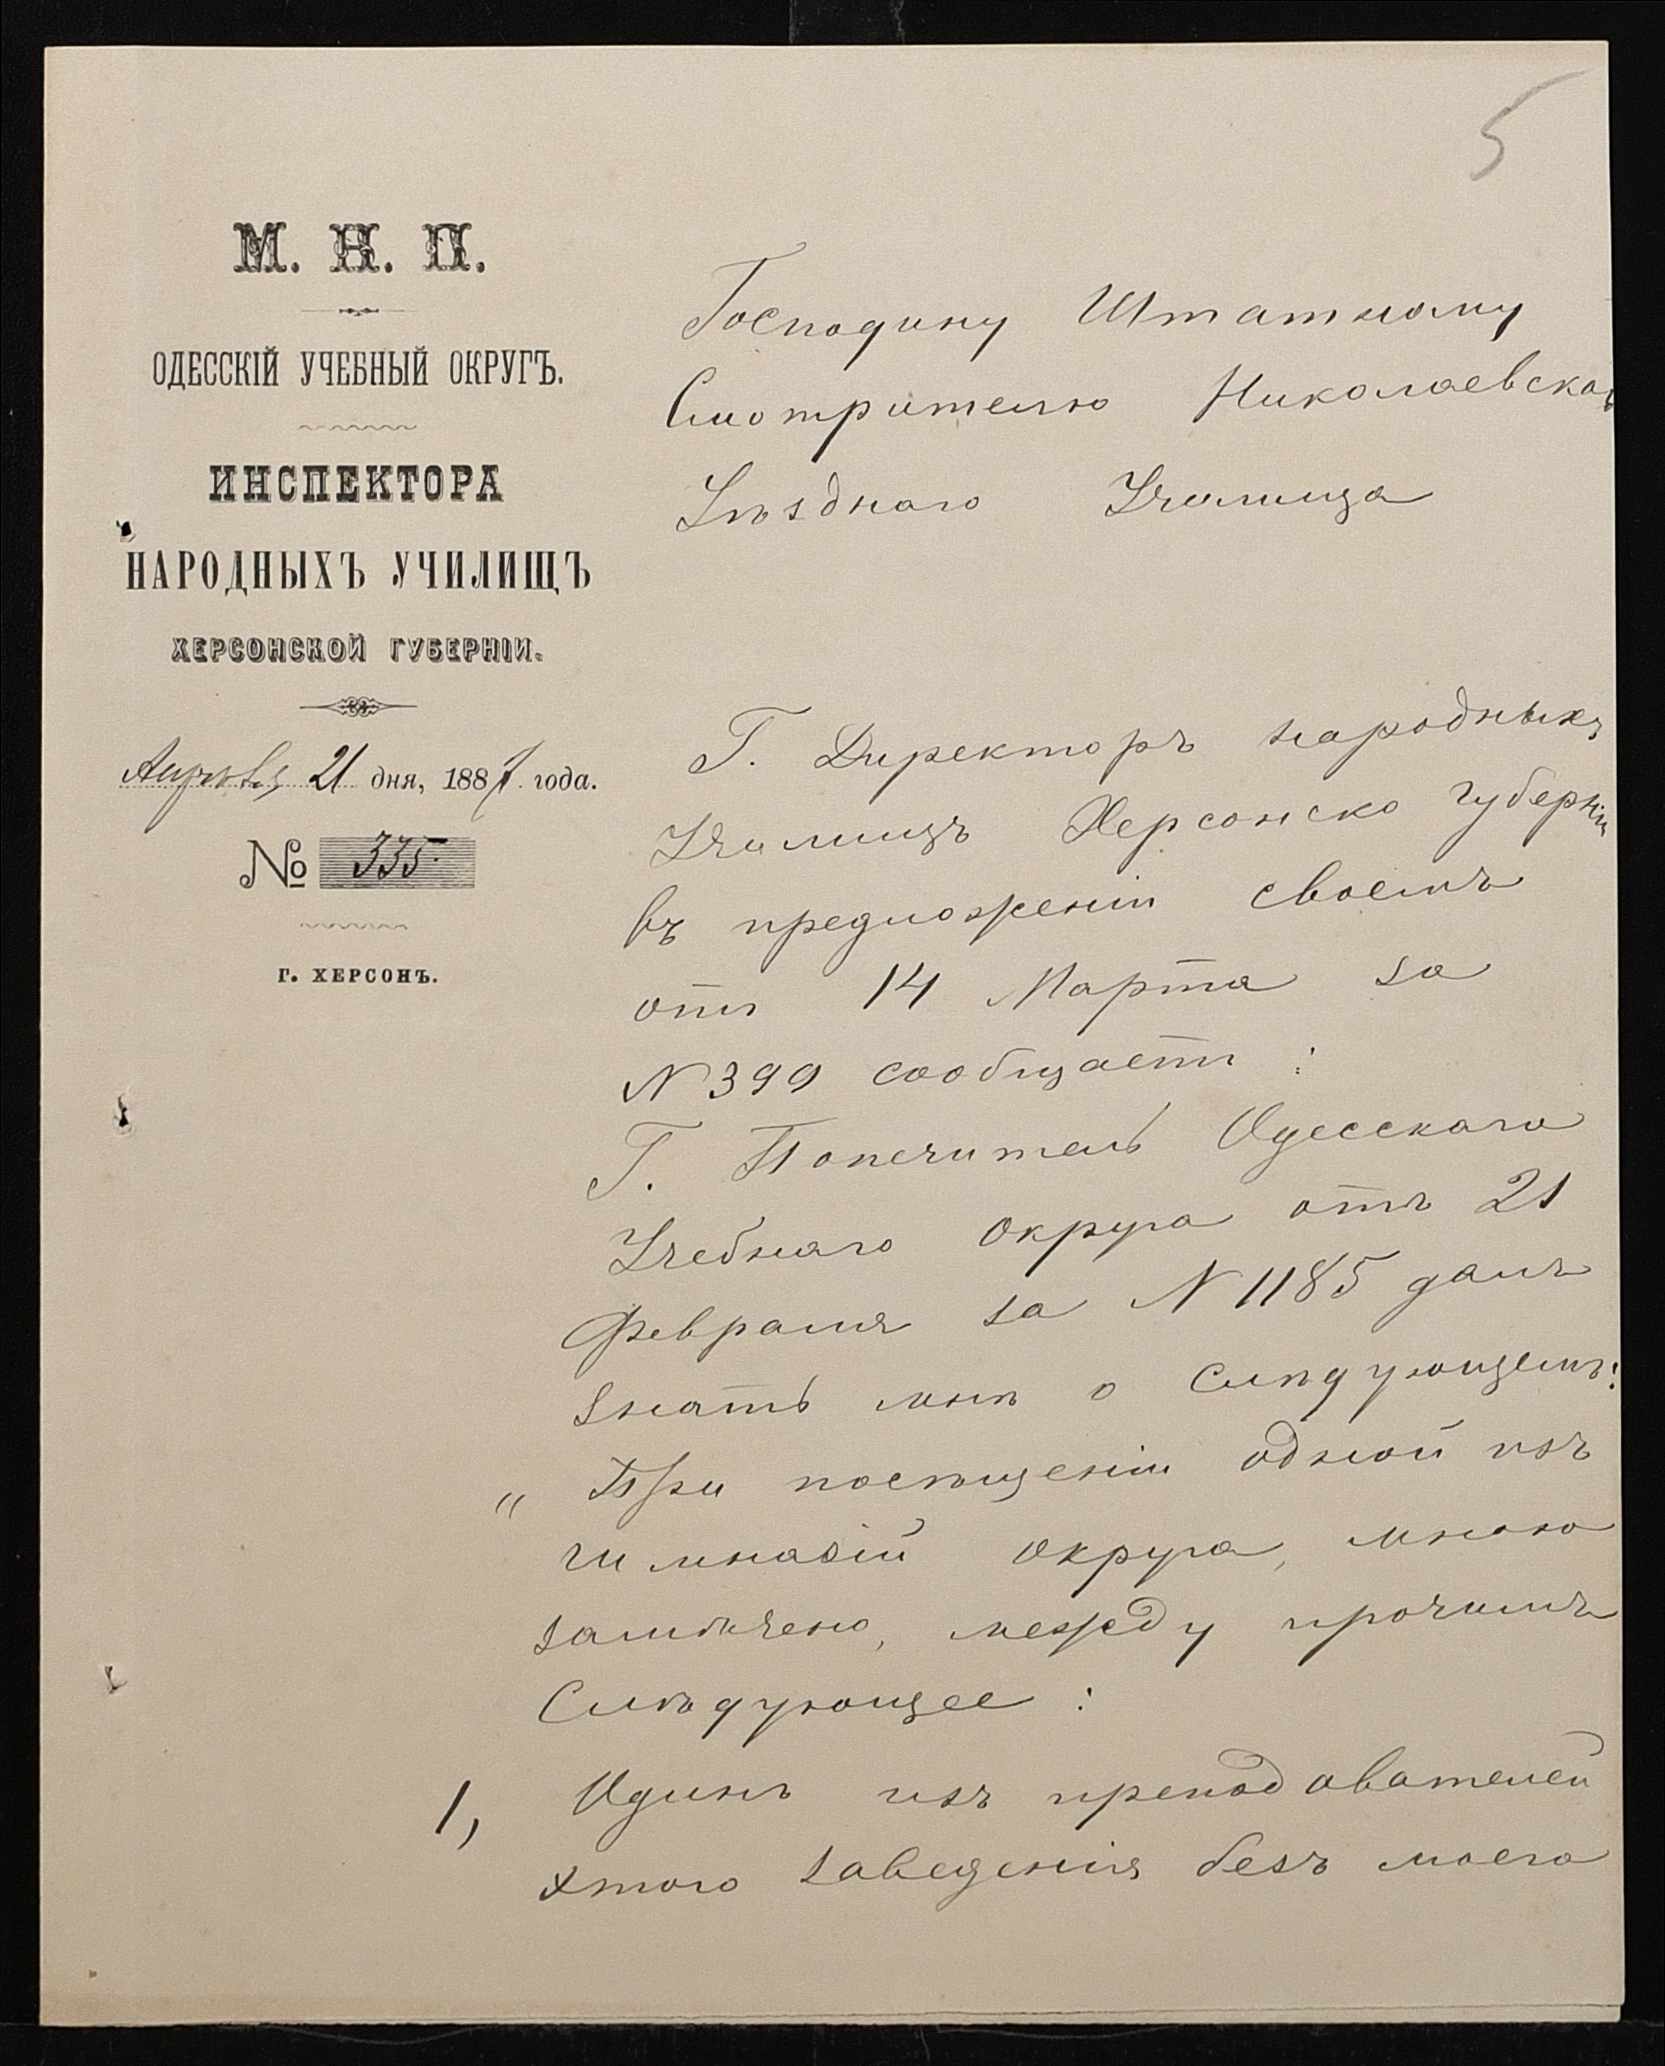 5
М. Н. П.
ОДЕССКІЙ УЧЕБНЫЙ ОКРУГЪ.
ИНСПЕКТОРА
НАРОДНЫХЪ УЧИЛИЩЪ
ХЕРСОНСКОЙ ГУБЕРНІИ.
Апрѣля 21 дня, 1887 года.
№ 335.
Г. ХЕРСОНЪ.
Господину Штатному
Смотрителю Николаевскаго
Уѣзднаго Училища
Г. Директоръ народныхъ
Училищъ Херсонско губерніи
въ предложеніи своемъ
отъ 14 Марта за
N 399 сообщаетъ :
Г. Попечитель Одесскаго
Учебнаго Округа отъ 21
Февраля за N 1185 далъ
знать мнѣ о слѣдующемъ:
„ При посѣщеніи одной изъ
гимназій округа, мною
замѣчено, между прочимъ
Слѣдующее :
1, Одинъ изъ преподавателей
этого заведенія безъ моего